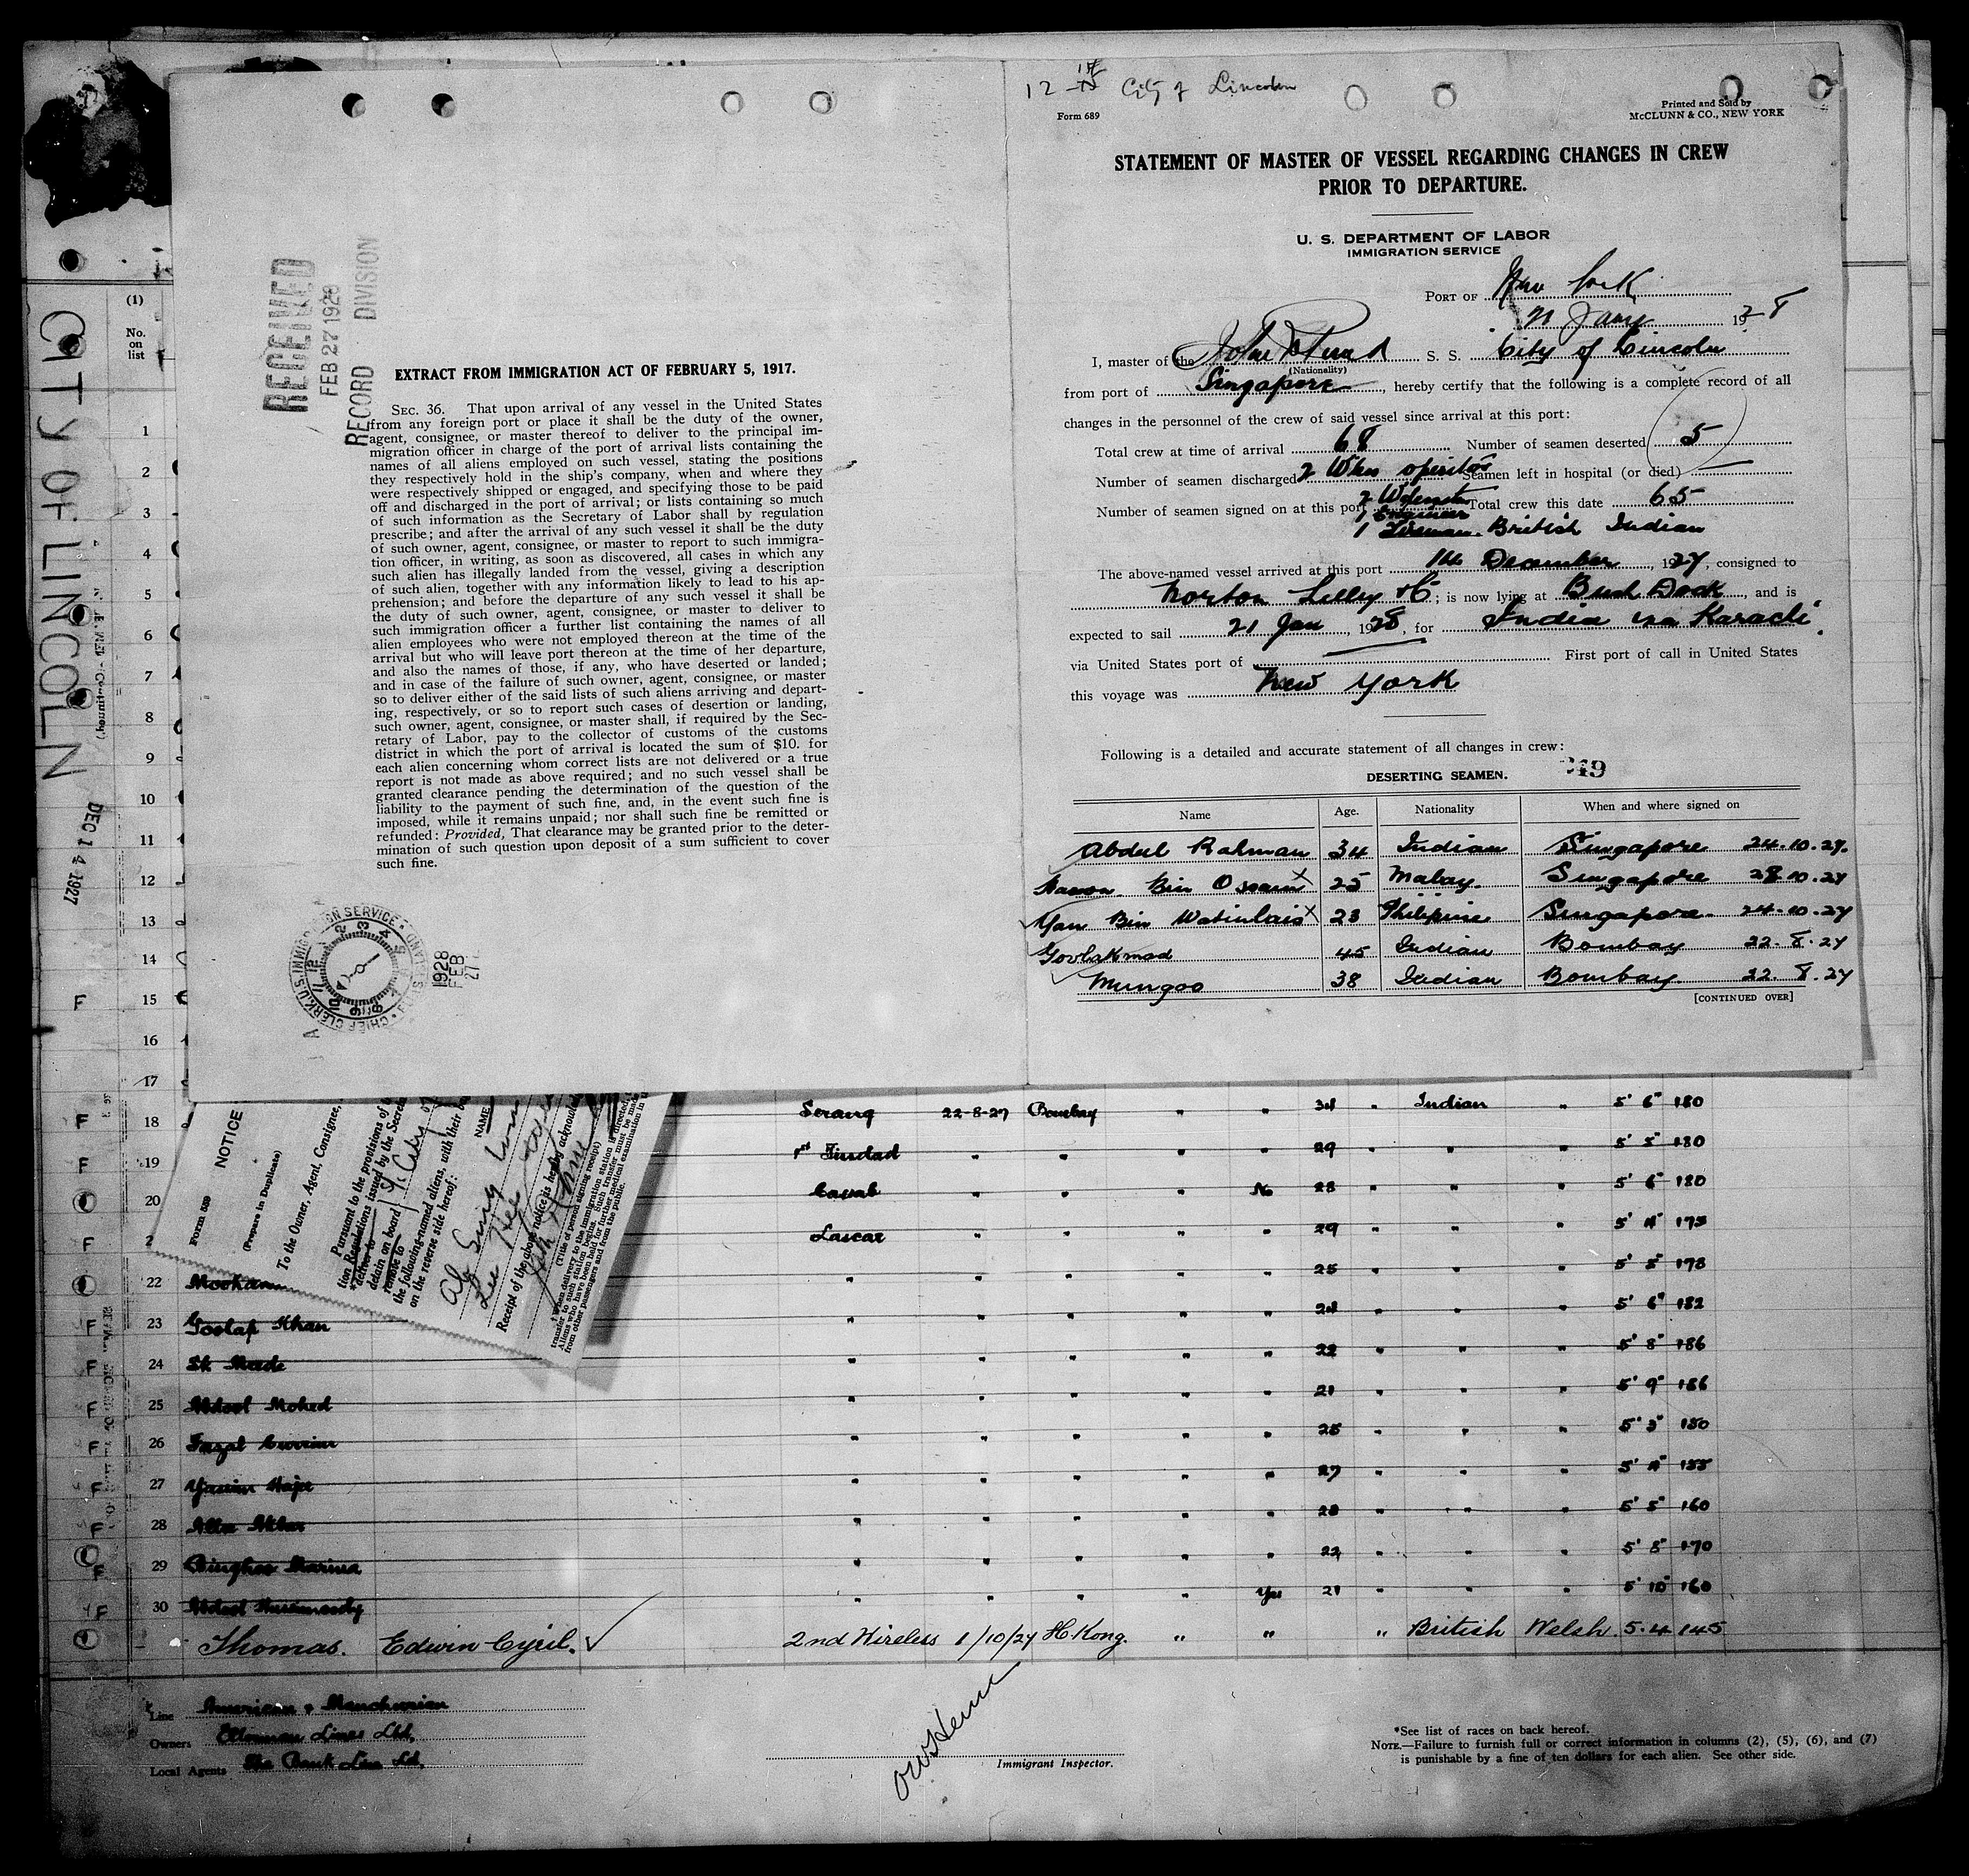 12-15 City of Lincoln
Form 689
Printed and Sold by
McCLUNN & CO., NEW YORK
STATEMENT OF MASTER OF VESSEL REGARDING CHANGES IN CREW
PRIOR TO DEPARTURE.
U. S. DEPARTMENT OF LABOR
IMMIGRATION SERVICE
PORT OF New York
21 Jany 1928
I, master of the S. S. City of Lincoln
(Nationality)
from port of Singapore, hereby certify that the following is a complete record of all
changes in the personnel of the crew of said vessel since arrival at this port:
Total crew at time of arrival 68 Number of seamen deserted 5
Number of seamen discharged 2 Seamen left in hospital (or died) —
Number of seamen signed on at this port 2 Total crew this date 65
1 Engineer
1 Fireman. British Indian
The above-named vessel arrived at this port 14 December, 1927, consigned to
Norton Lilly & Co; is now lying at Bush Dock, and is
expected to sail 21 Jan, 1928, for India via Karachi.
via United States port of First port of call in United States
this voyage was New York
Following is a detailed and accurate statement of all changes in crew:
DESERTING SEAMEN. 249
Name Age. Nationality When and where signed on
Abdul Rahman 34 Indian Singapore 24.10.27.
Bin Ossain X 25 Malay. Singapore 28.10.27
Yan Bin X 23 Philipine Singapore 24.10.27
45 Indian Bombay 22.8.27
Mungoo 38 Indian Bombay. 22.8.27
[CONTINUED OVER]
RECEIVED
FEB 27 1928
RECORD DIVISION
EXTRACT FROM IMMIGRATION ACT OF FEBRUARY 5, 1917.
SEC. 36. That upon arrival of any vessel in the United States
from any foreign port or place it shall be the duty of the owner,
agent, consignee, or master thereof to deliver to the principal im-
migration officer in charge of the port of arrival lists containing the
names of all aliens employed on such vessel, stating the positions
they respectively hold in the ship's company, when and where they
were respectively shipped or engaged, and specifying those to be paid
off and discharged in the port of arrival; or lists containing so much
of such information as the Secretary of Labor shall by regulation
prescribe; and after the arrival of any such vessel it shall be the duty
of such owner, agent, consignee, or master to report to such immigra-
tion officer, in writing, as soon as discovered, all cases in which any
such alien has illegally landed from the vessel, giving a description
of such alien, together with any information likely to lead to his ap-
prehension; and before the departure of any such vessel it shall be
the duty of such owner, agent, consignee, or master to deliver to
such immigration officer a further list containing the names of all
alien employees who were not employed thereon at the time of the
arrival but who will leave port thereon at the time of her departure,
and also the names of those, if any, who have deserted or landed;
and in case of the failure of such owner, agent, consignee, or master
so to deliver either of the said lists of such aliens arriving and depart-
ing, respectively, or so to report such cases of desertion or landing,
such owner, agent, consignee, or master shall, if required by the Sec-
retary of Labor, pay to the collector of customs of the customs
district in which the port of arrival is located the sum of $10. for
each alien concerning whom correct lists are not delivered or a true
report is not made as above required; and no such vessel shall be
granted clearance pending the determination of the question of the
liability to the payment of such fine, and, in the event such fine is
imposed, while it remains unpaid; nor shall such fine be remitted or
refunded: Provided, That clearance may be granted prior to the deter-
mination of such question upon deposit of a sum sufficient to cover
such fine.
1928
FEB
27
CITY OF LINCOLN
DEC 14 1927
(1)
No.
on
list
1
2
3
4
5
6
7
8
9
10
11
12
13
14
F 15
16
17
F 18 Serang 22-8-27 Bombay " " 34 " Indian " 5' 6" 180
F 19 1st Tindal " " " " 29 " " " 5' 5" 180
20 " " " No 28 " " " 5' 6" 180
F 2 Lascar " " " " 29 " " " 5' 4" 175
22 " " " " " 25 " " " 5' 5" 178
F 23 Goolap Khan " " " " " 24 " " " 5' 6" 182
F 24 Sk " " " " " 22 " " " 5' 8" 186
F 25 Abdool Mohed " " " " " 21 " " " 5' 9" 186
F 26 Fazal " " " " " 25 " " " 5' 3" 150
F 27 " " " " " 27 " " " 5' 4" 155
F 28 " " " " " 28 " " " 5' 5" 160
F 29 " " " " " 22 " " " 5' 8" 170
F 30 Abdool " " " " Yes 21 " " " 5' 10" 160
Thomas. Edwin Cyril. 2nd Wireless 1/10/27 H.Kong. " " " British Welsh 5.4 145
Form 559
NOTICE
(Prepare in Duplicate)
To the Owner, Agent, Consignee,
Pursuant to the provisions of
tion Regulations issued by the Secreta
deliver to
detain on board
remove to
the following-named aliens, with their
on the reverse side hereof:
NAME
Ah Sing
Lee
Receipt of the above notice is hereby acknowled
(Title of person signing receipt)
Line American & Manchurian
Owners Ellerman Lines Ltd,
Local Agents The Bank Line Ld,
Immigrant Inspector.
*See list of races on back hereof.
NOTE.—Failure to furnish full or correct information in columns (2), (5), (6), and (7)
is punishable by a fine of ten dollars for each alien. See other side.